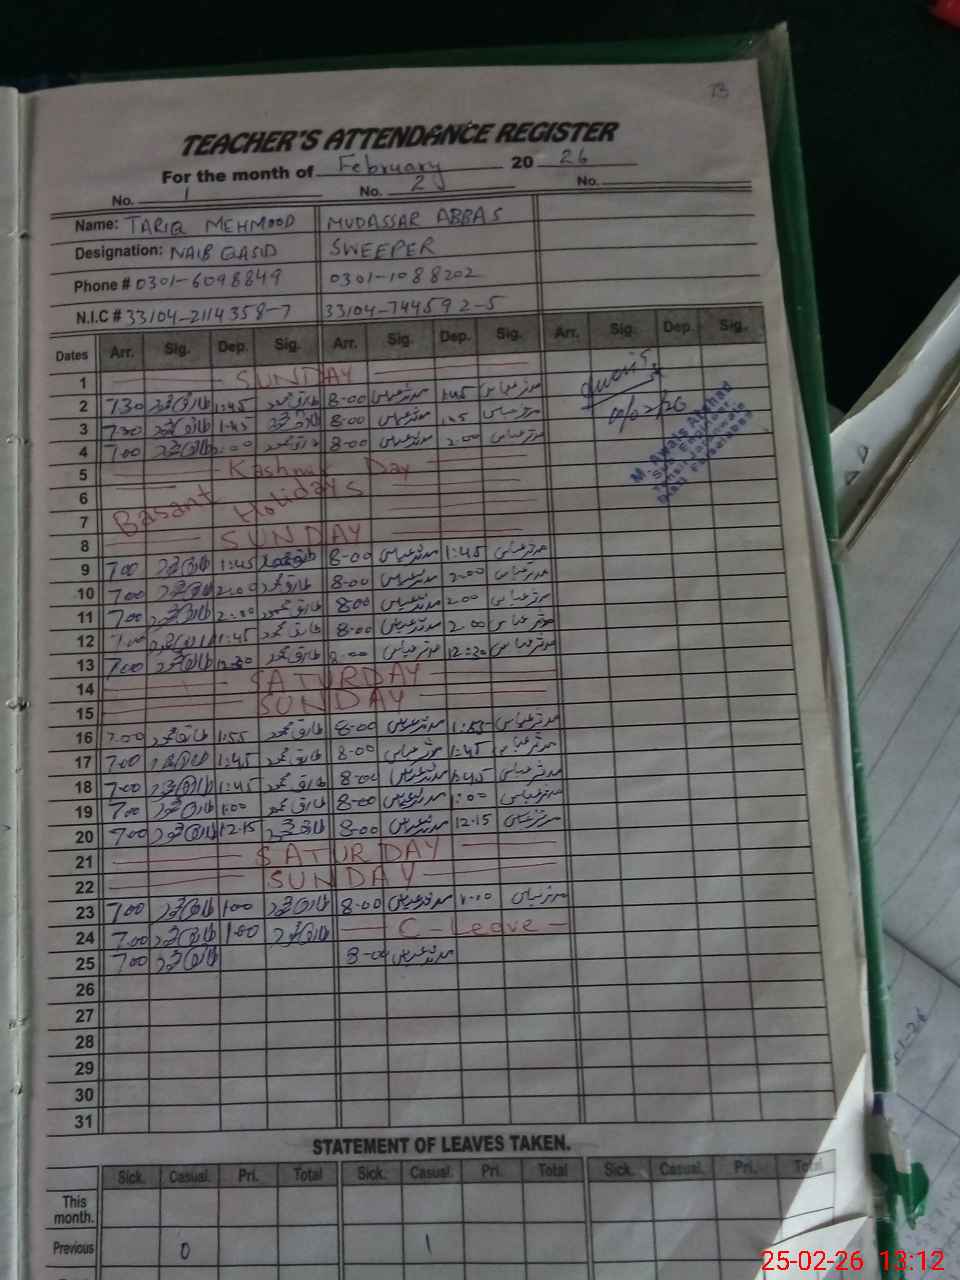 73
TEACHER'S ATTENDANCE REGISTER
For the month of February 20 26
No. 1 No. 2 No.
Name: TARIQ MEHMOOD MUDASSAR ABBAS
Designation: NAIB QASID SWEEPER
Phone # 0301-6098849 0301-1088202
N.I.C # 33104-2114358-7 33104-744592-5
Dates Arr. Sig. Dep. Sig. Arr. Sig. Dep. Sig. Arr. Sig. Dep. Sig.
1 SUNDAY
2 7:30 طارق محمود 1:45 طارق محمود 8-00 مدثر عباس 1:45 مدثر عباس
3 7:30 طارق محمود 1:45 طارق محمود 8-00 مدثر عباس مدثر عباس
4 7:00 طارق محمود طارق محمود 8-00 مدثر عباس 2:00 مدثر عباس
5 Kashmir Day
6
7 Basant Holidays
8 SUNDAY
9 7:00 طارق محمود 1:45 طارق محمود 8-00 مدثر عباس 1:45 مدثر عباس
10 7:00 طارق محمود 2:00 طارق محمود 8-00 مدثر عباس 2:00 مدثر عباس
11 7:00 طارق محمود 2:00 طارق محمود 8:00 مدثر عباس 2:00 مدثر عباس
12 طارق محمود 1:45 طارق محمود 8-00 مدثر عباس 2:00 مدثر عباس
13 7:00 طارق محمود 12:30 طارق محمود 8-00 مدثر عباس 12:30 مدثر عباس
14 SATURDAY
15 SUNDAY
16 7:00 طارق محمود 1:55 طارق محمود 8-00 مدثر عباس مدثر عباس
17 7:00 طارق محمود 1:45 طارق محمود 8-00 مدثر عباس 1:45 مدثر عباس
18 7:00 طارق محمود 1:45 طارق محمود 8-00 مدثر عباس 1:45 مدثر عباس
19 7:00 طارق محمود 1:00 طارق محمود 8-00 مدثر عباس 1:00 مدثر عباس
20 7:00 طارق محمود 12:15 طارق محمود 8-00 مدثر عباس 12:15 مدثر عباس
21 SATURDAY
22 SUNDAY
23 7:00 طارق محمود 1:00 طارق محمود 8-00 مدثر عباس مدثر عباس
24 7:00 طارق محمود 1:00 طارق محمود C-Leave
25 7:00 طارق محمود 8-00 مدثر عباس
26
27
28
29
30
31
M. Awais Arshad
STATEMENT OF LEAVES TAKEN.
Sick. Casual. Pri. Total Sick. Casual. Pri. Total Sick. Casual. Pri. Total
This month.
Previous 0 1
25-02-26 13:12